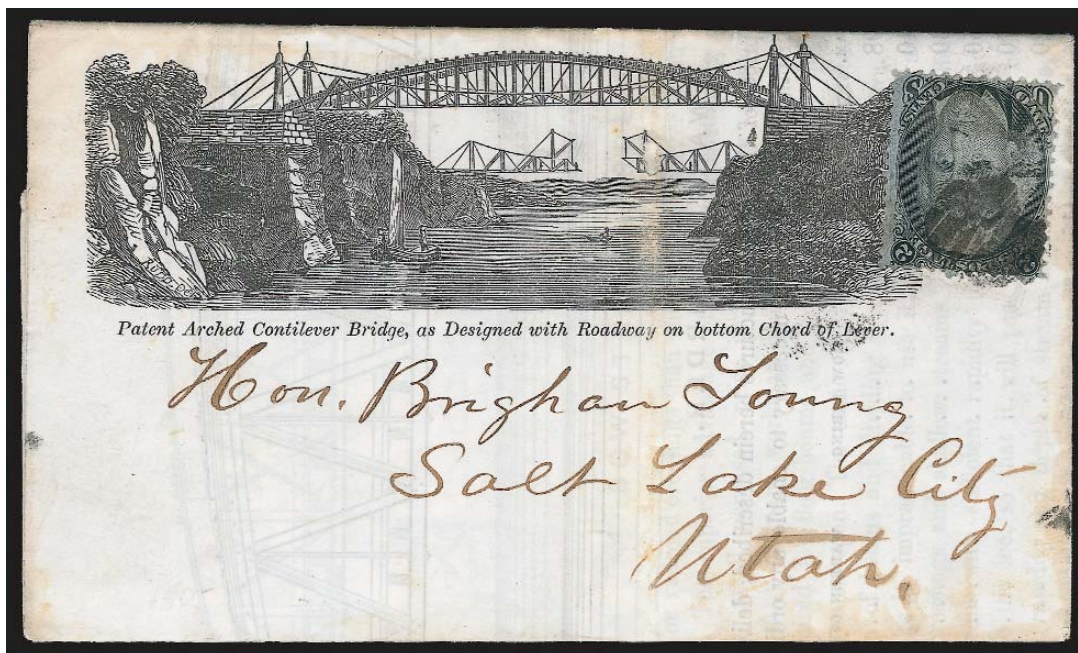 Patent Arched Contilever Bridge, as Designed with Roadway on bottom Chord of Lever.
Hon. Brigham Young
Salt Lake City
Utah.